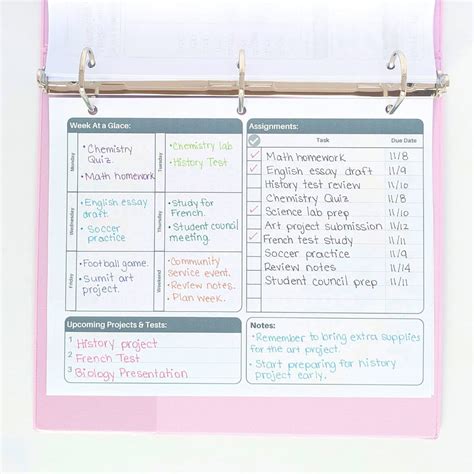 Week At a Glace:
Monday
• Chemistry
Quiz.
• Math homework
Tuesday
• Chemistry lab
• History Test
Wednesday
• English essay
draft.
• Soccer
practice
Thursday
• Study for
French.
• Student council
meeting.
Friday
• Football game.
• Sumit art
project.
Weekend
• Community
service event.
• Review notes.
• Plan week.
Assignments:
Task Due Date
Math homework 11/8
English essay draft 11/9
History test review 11/10
Chemistry Quiz 11/8
Science lab prep 11/10
Art project submission 11/12
French test study 11/11
Soccer practice 11/9
Review notes 11/14
Student council prep 11/11
Upcoming Projects & Tests:
1 History project
2 French Test
3 Biology Presentation
Notes:
• Remember to bring extra supplies
for the art project.
• Start preparing for history
project early.